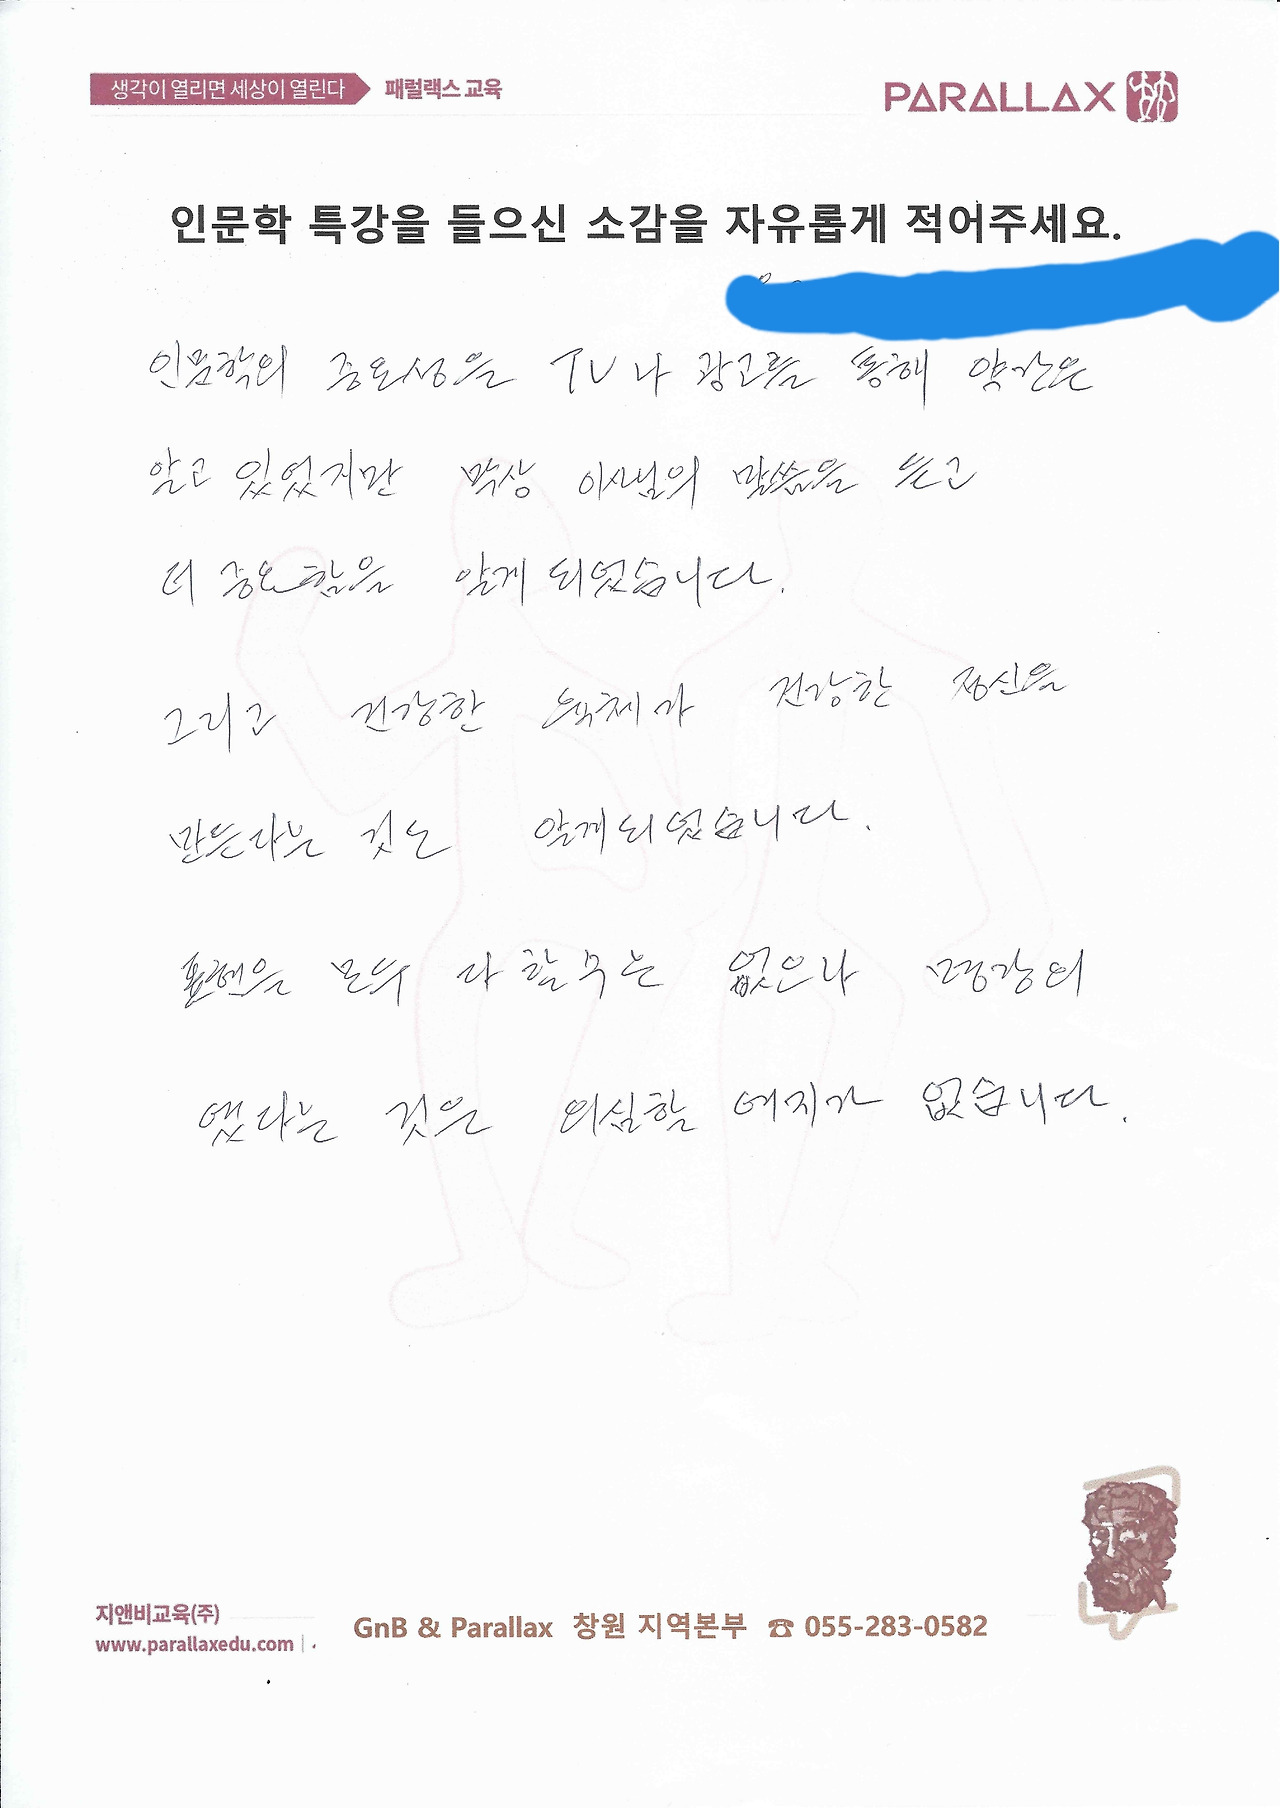 생각이 열리면 세상이 열린다 패럴랙스 교육
PARALLAX
인문학 특강을 들으신 소감을 자유롭게 적어주세요.
인문학의 중요성을 TV나 광고를 통해 약간은
알고 있었지만 막상 이사님의 말씀을 듣고
더 중요함을 알게 되었습니다.
그리고 건강한 육체가 건강한 정신을
만든다는 것도 알게되었습니다.
표현은 모두 다 할 수는 없으나 명강의
였다는 것은 의심할 여지가 없습니다.
지앤비교육(주)
www.parallaxedu.com
GnB & Parallax 창원 지역본부 ☎ 055-283-0582